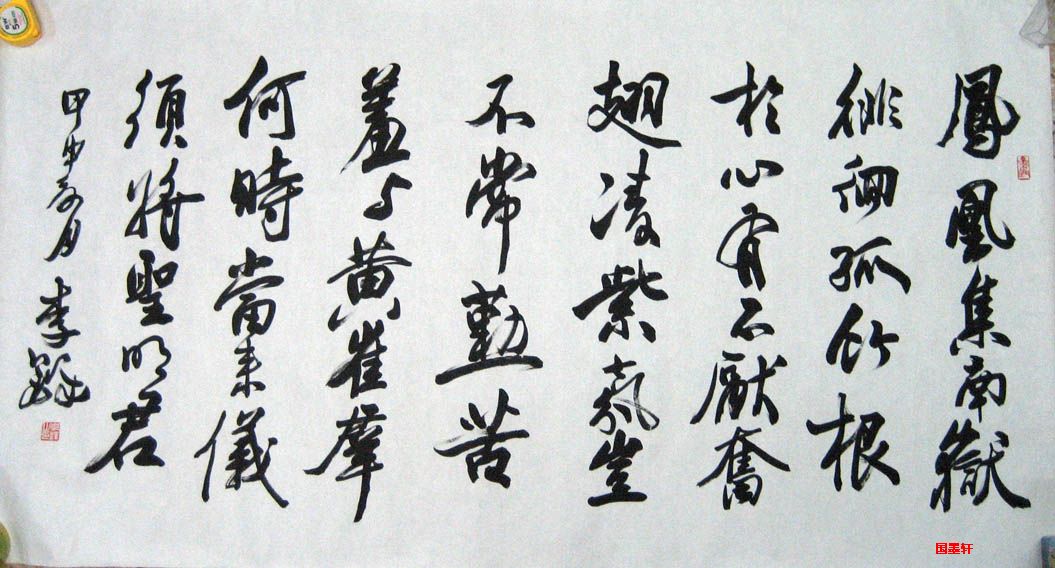 鳳凰集南嶽
徘徊孤竹根
於心有不厭奮
翅凌紫氣豈
不常勤苦
羞与黄雀羣
何時當来儀
須將聖明君
甲申月
李
国墨轩